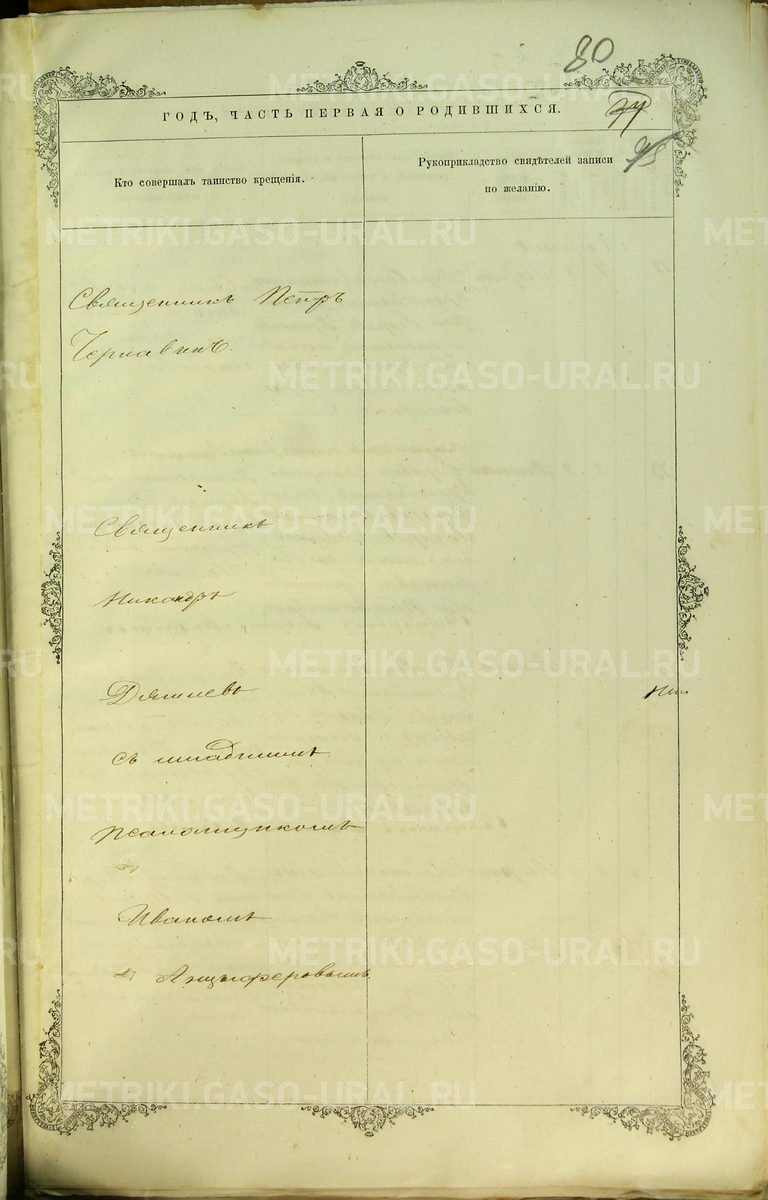 80
ГОДЪ, ЧАСТЬ ПЕРВАЯ О РОДИВШИХСЯ.
Кто совершалъ таинство крещенія.
Рукоприкладство свидѣтелей записи
по желанію.
Священникъ Петръ
Чернавинъ.
Священникъ
Никандръ
Дягилевъ
съ младшимъ
псаломщикомъ
Иваномъ
Анциферовымъ
METRIKI.GASO-URAL.RU